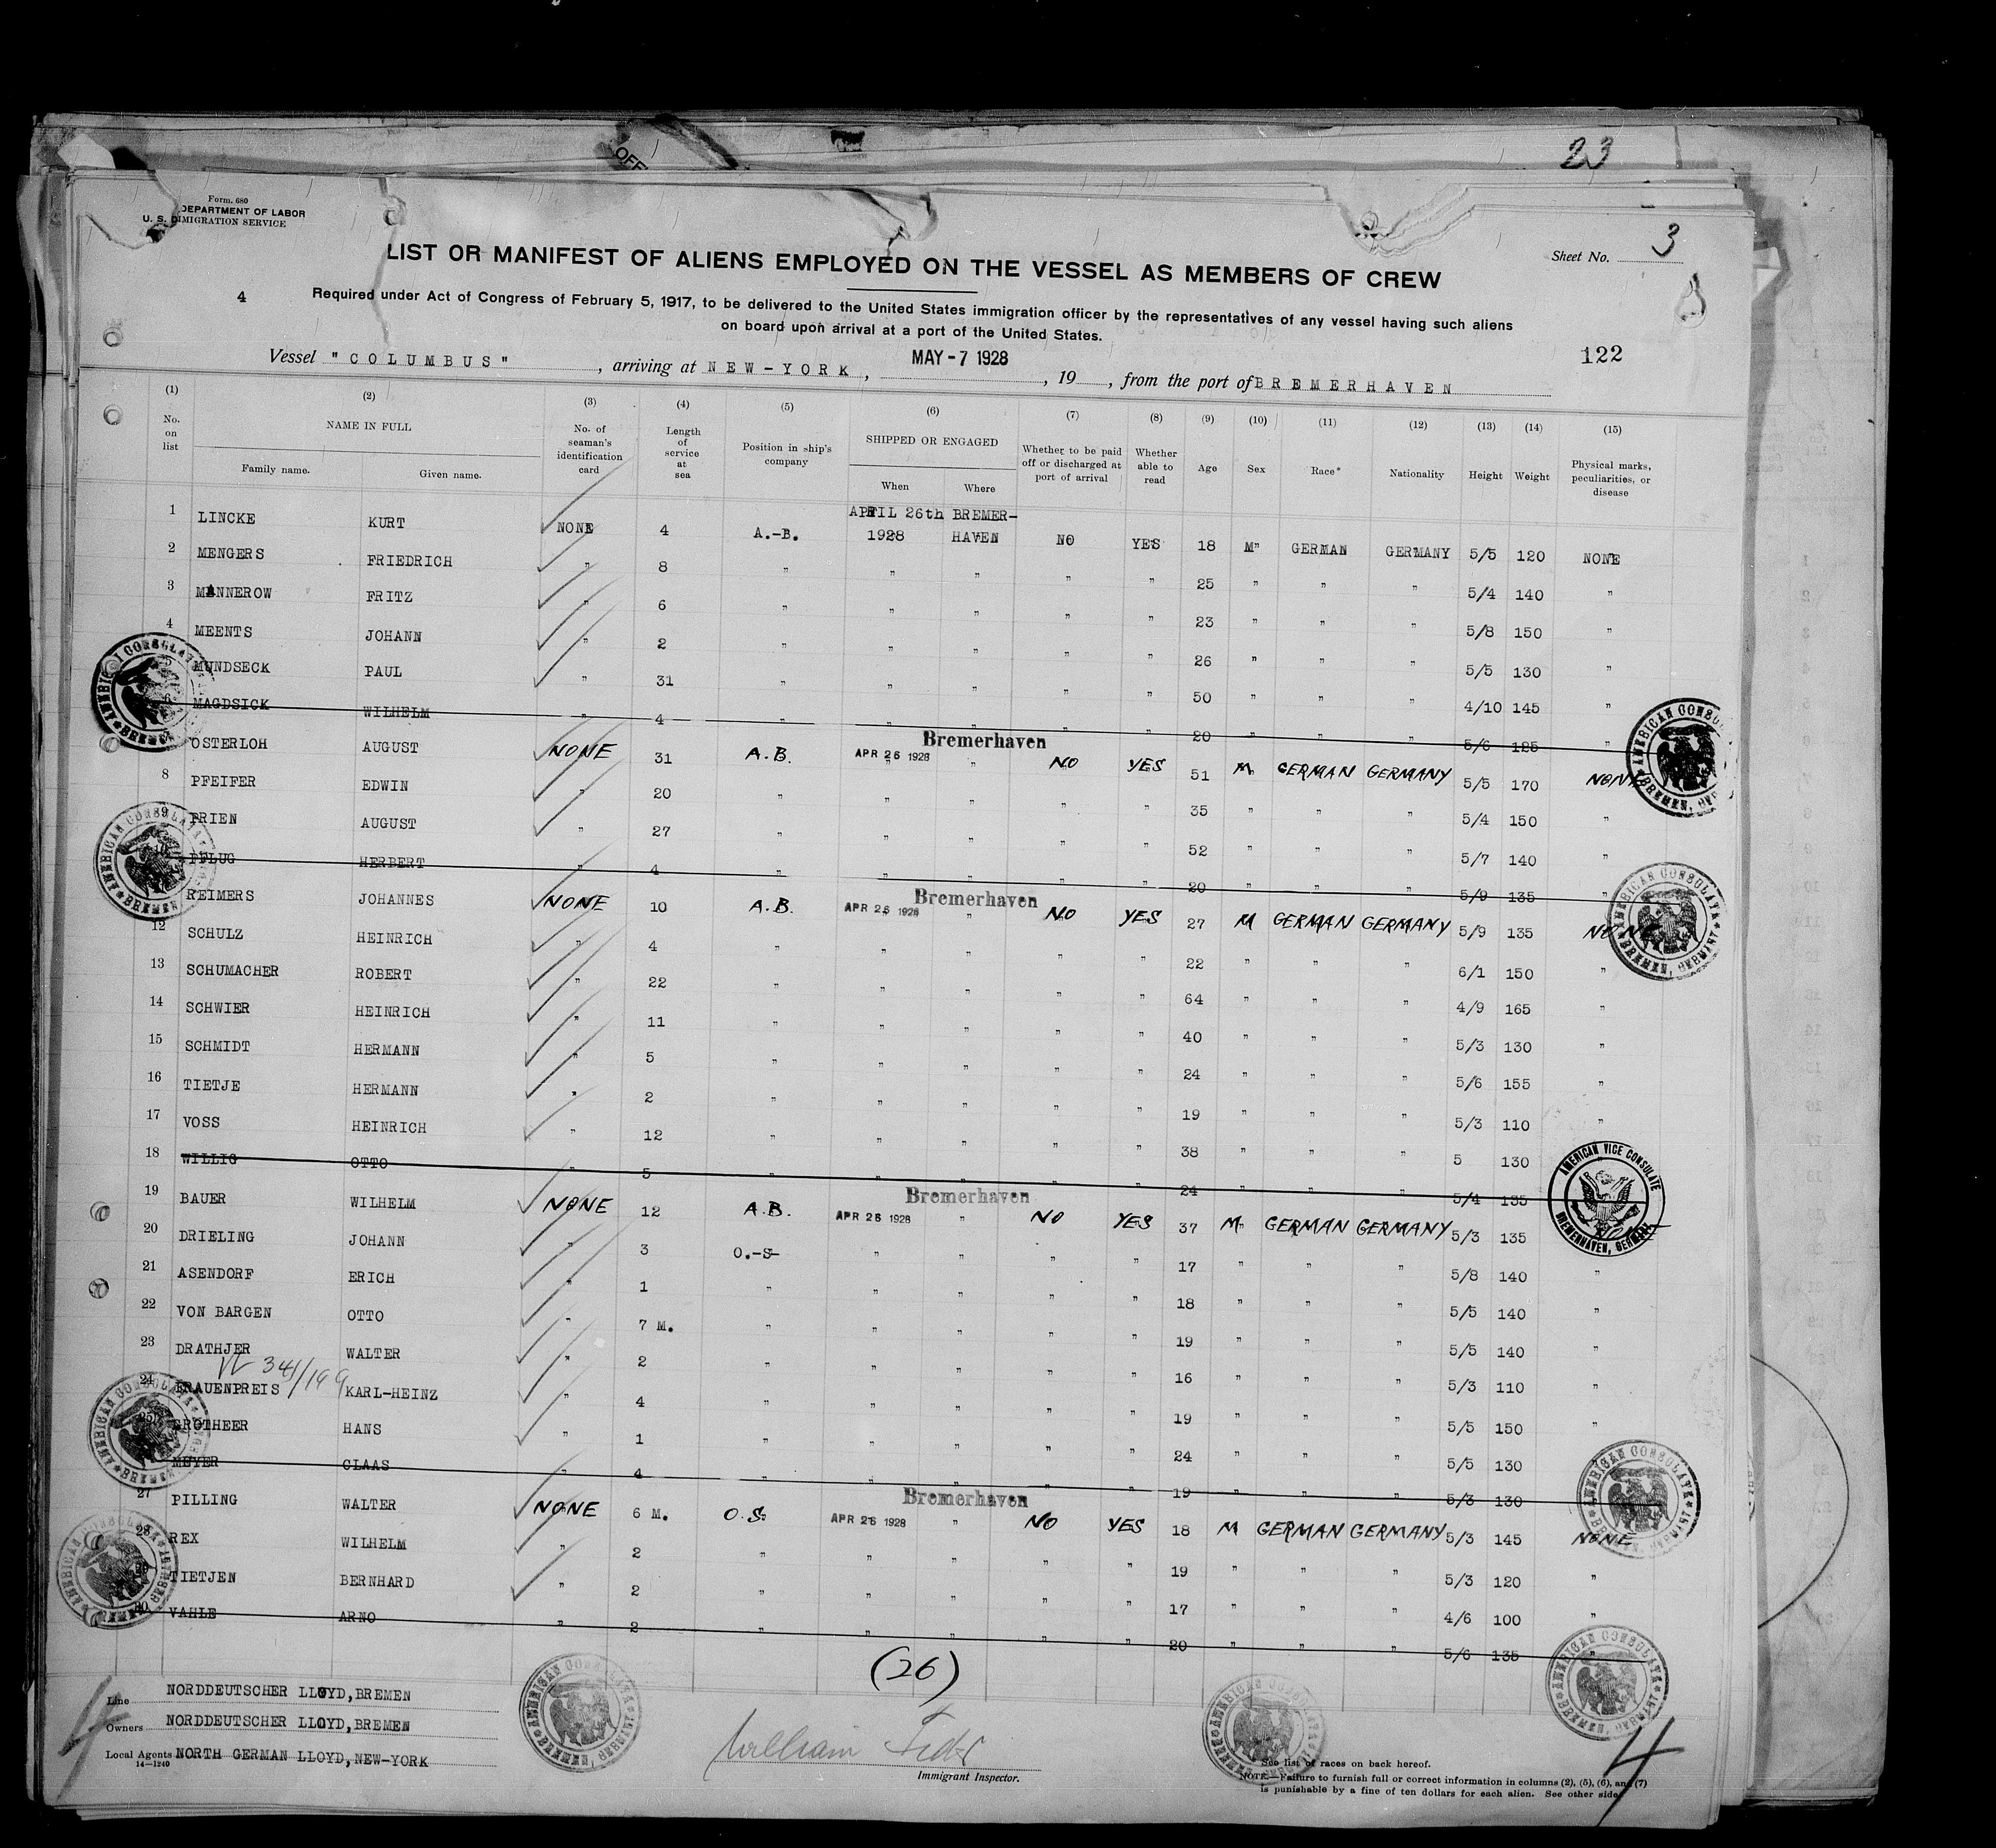 OFF
23
Form. 680
DEPARTMENT OF LABOR
U. S. IMMIGRATION SERVICE
Sheet No. 3
LIST OR MANIFEST OF ALIENS EMPLOYED ON THE VESSEL AS MEMBERS OF CREW
4
Required under Act of Congress of February 5, 1917, to be delivered to the United States immigration officer by the representatives of any vessel having such aliens
on board upon arrival at a port of the United States.
122
Vessel "COLUMBUS", arriving at NEW-YORK, MAY - 7 1928, 19, from the port of BREMERHAVEN
(1) (2) (3) (4) (5) (6) (7) (8) (9) (10) (11) (12) (13) (14) (15)
No. on list NAME IN FULL Family name. Given name. No. of seaman's identification card Length of service at sea Position in ship's company SHIPPED OR ENGAGED When Where Whether to be paid off or discharged at port of arrival Whether able to read Age Sex Race* Nationality Height Weight Physical marks, peculiarities, or disease
1 LINCKE KURT NONE 4 A.-B. APRIL 26th 1928 BREMER-HAVEN NO YES 18 M" GERMAN GERMANY 5/5 120 NONE
2 MENGERS FRIEDRICH " 8 " " " " " 25 " " " 5/4 140 "
3 MANNEROW FRITZ " 6 " " " " " 23 " " " 5/8 150 "
4 MEENTS JOHANN " 2 " " " " " 26 " " " 5/5 130 "
5 MUNDSECK PAUL " 31 " " " " " 50 " " " 4/10 145 "
6 MAGDSICK WILHELM " 4 " " " " " 20 " " " 5/6 125 "
OSTERLOH AUGUST NONE 31 A.B. APR 26 1928 Bremerhaven NO YES 51 M GERMAN GERMANY 5/5 170 NONE
8 PFEIFER EDWIN " 20 " " " " " 35 " " " 5/4 150 "
9 PRIEN AUGUST " 27 " " " " " 52 " " " 5/7 140 "
10 PFLUG HERBERT " 4 " " " " " 20 " " " 5/9 135 "
REIMERS JOHANNES NONE 10 A.B. APR 26 1928 Bremerhaven NO YES 27 M GERMAN GERMANY 5/9 135 NONE
12 SCHULZ HEINRICH " 4 " " " " " 22 " " " 6/1 150 "
13 SCHUMACHER ROBERT " 22 " " " " " 64 " " " 4/9 165 "
14 SCHWIER HEINRICH " 11 " " " " " 40 " " " 5/3 130 "
15 SCHMIDT HERMANN " 5 " " " " " 24 " " " 5/6 155 "
16 TIETJE HERMANN " 2 " " " " " 19 " " " 5/3 110 "
17 VOSS HEINRICH " 12 " " " " " 38 " " " 5 130
18 WILLIG OTTO " 5 " " " " " 24 " " " 5/4 135
19 BAUER WILHELM NONE 12 A.B. APR 26 1928 Bremerhaven NO YES 37 M GERMAN GERMANY 5/3 135
20 DRIELING JOHANN " 3 O.-S- " " " " 17 " " " 5/8 140 "
21 ASENDORF ERICH " 1 " " " " " 18 " " " 5/5 140 "
22 VON BARGEN OTTO " 7 M. " " " " " 19 " " " 5/5 140 "
23 DRATHJER WALTER " 2 " " " " " 16 " " " 5/3 110 "
24 FRAUENPREIS KARL-HEINZ " 4 " " " " " 19 " " " 5/5 150 "
25 GROTHEER HANS " 1 " " " " " 24 " " " 5/5 130 "
MEYER CLAAS " 4 " " " " " 19 " " " 5/3 130
27 PILLING WALTER NONE 6 M. O.S. APR 26 1928 Bremerhaven NO YES 18 M GERMAN GERMANY 5/3 145 NONE
28 REX WILHELM " 2 " " " " " 19 " " " 5/3 120 "
29 TIETJEN BERNHARD " 2 " " " " " 17 " " " 4/6 100 "
30 VAHLE ARNO " 2 " " " " " 20 " " " 5/6 135 "
AMERICAN CONSULATE BREMEN, GERMANY
AMERICAN VICE CONSULATE BREMERHAVEN, GERMANY
(26)
Line NORDDEUTSCHER LLOYD, BREMEN
Owners NORDDEUTSCHER LLOYD, BREMEN
Local Agents NORTH GERMAN LLOYD, NEW-YORK
14—1240
William
Immigrant Inspector.
See list of races on back hereof.
NOTE.—Failure to furnish full or correct information in columns (2), (5), (6), and (7)
is punishable by a fine of ten dollars for each alien. See other side.
4
4